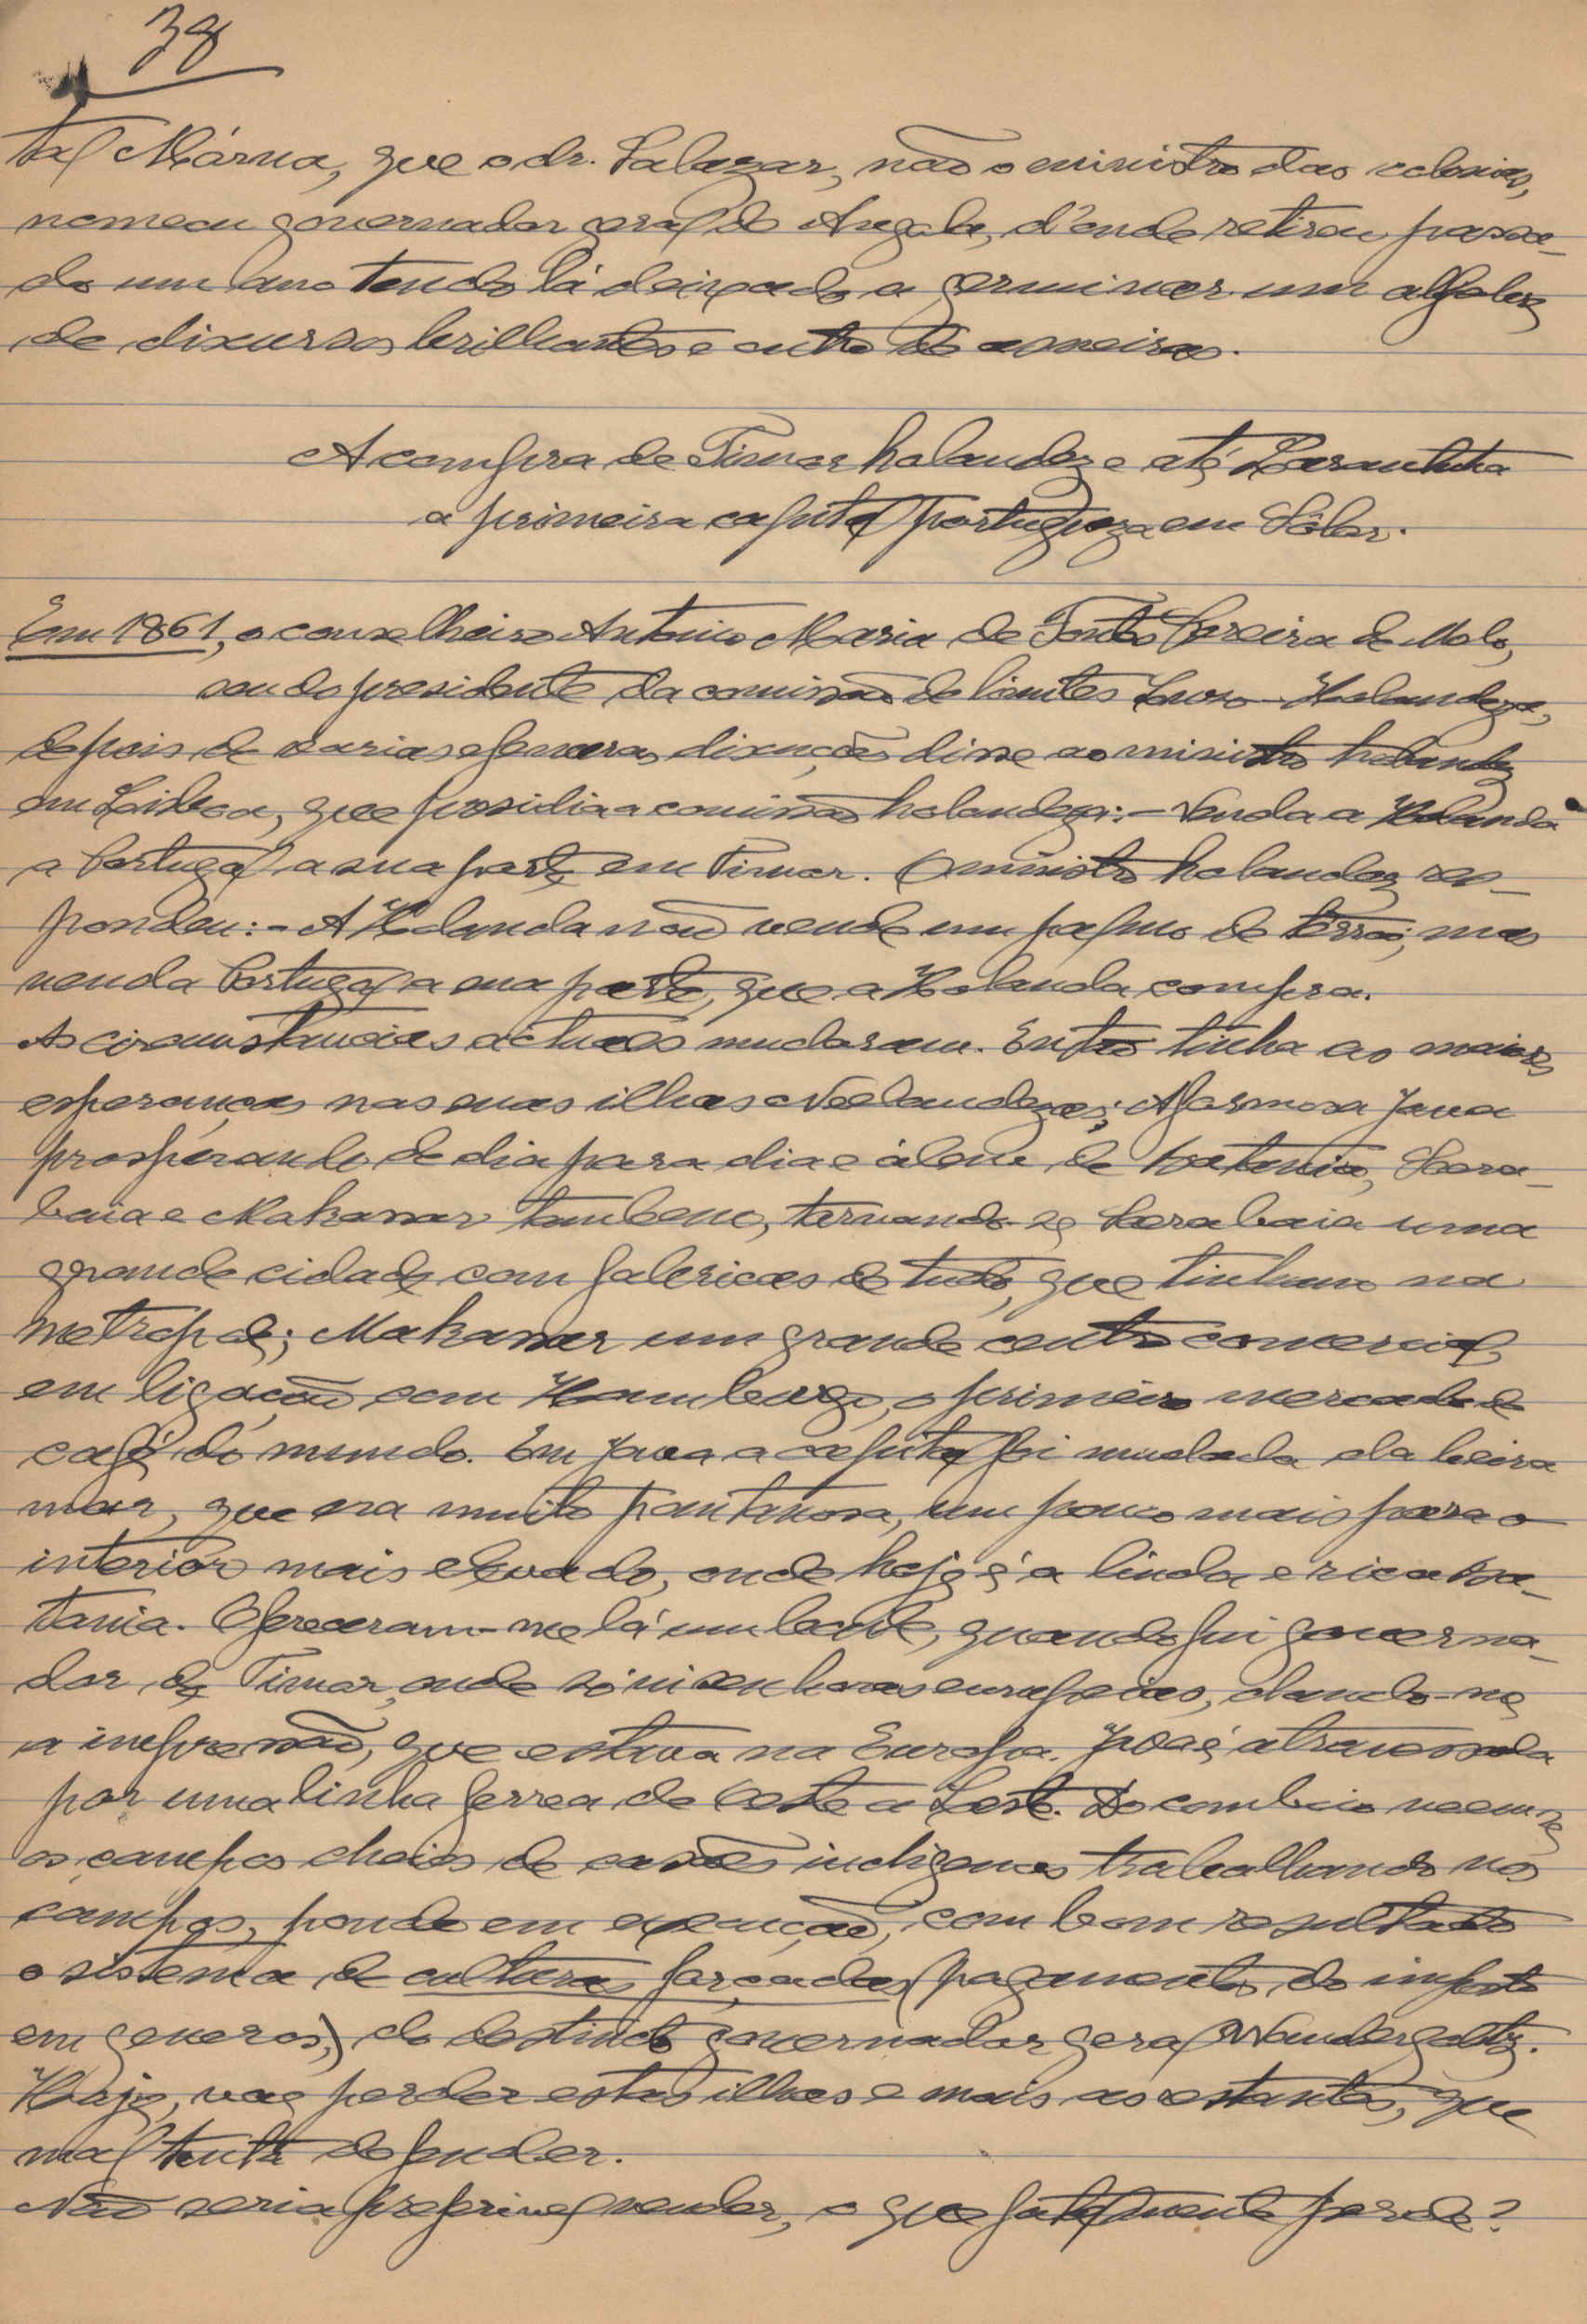 38
tal Márna, que o dr. Salazar, não o ministro das colonias,
nomeou governador geral de Angola, d'onde retirou passa-
do um ano tendo lá deixado a germinar um alfobre
de discursos brilhantes e outro de asneiras.
A compra de Timor holandez e até Larantuka
a primeira capital portugueza em Sôlor.
Em 1861, o conselheiro Antonio Maria de Fontes Pereira de Melo,
sendo presidente da comissão de limites Luso-Holandeza,
depois de varias e femeras discuções disse ao ministro holandez
em Lisboa, que presidia a comissão holandeza: - Venda a Holanda
a Portugal a sua parte em Timor. O ministro holandez res-
pondeu: - A Holanda não vende um palmo de terra; mas
venda Portugal a sua parte, que a Holanda compra.
As circumstancias actuaes mudaram. Então tinha as maiores
esperanças nas suas ilhas Neelandezas; A formosa Java
prosperando de dia para dia e álem de Batavia, Sora-
baia e Makassar tambem, tornando-se Sorabaia uma
grande cidade com fabricas de tudo, que tinham na
metropole; Makassar um grande centro comercial,
em ligação com Hamburgo, o primeiro mercado de
café do mundo. Em Java a capital foi mudada da beira
mar, que era muito pantanosa, um pouco mais para o
interior mais elevado, onde hoje é a linda e rica Ba-
tavia. Ofereceram-me lá um baile, quando fui governa-
dor de Timor, onde só vi senhoras europeias, dando-me
a impressão, que estava na Europa. Java é atravessada
por uma linha ferrea de Oeste a Leste. Do comboio veem-se
os campos cheios de casaes indigenas trabalhando nos
campos, pondo em execução, com bom resultado
o sistema de culturas forçadas (pagamento do imposto
em generos,) do destincto governador geral
Hoje, vae perder estas ilhas e mais as restantes, que
mal tenta defender.
Não seria preferivel vender, o que fatalmente perde?